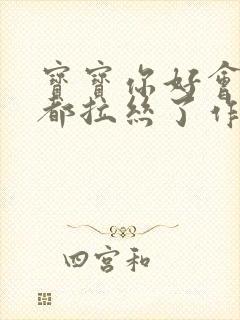 寶寶你好會
都拉絲了作
四宮和